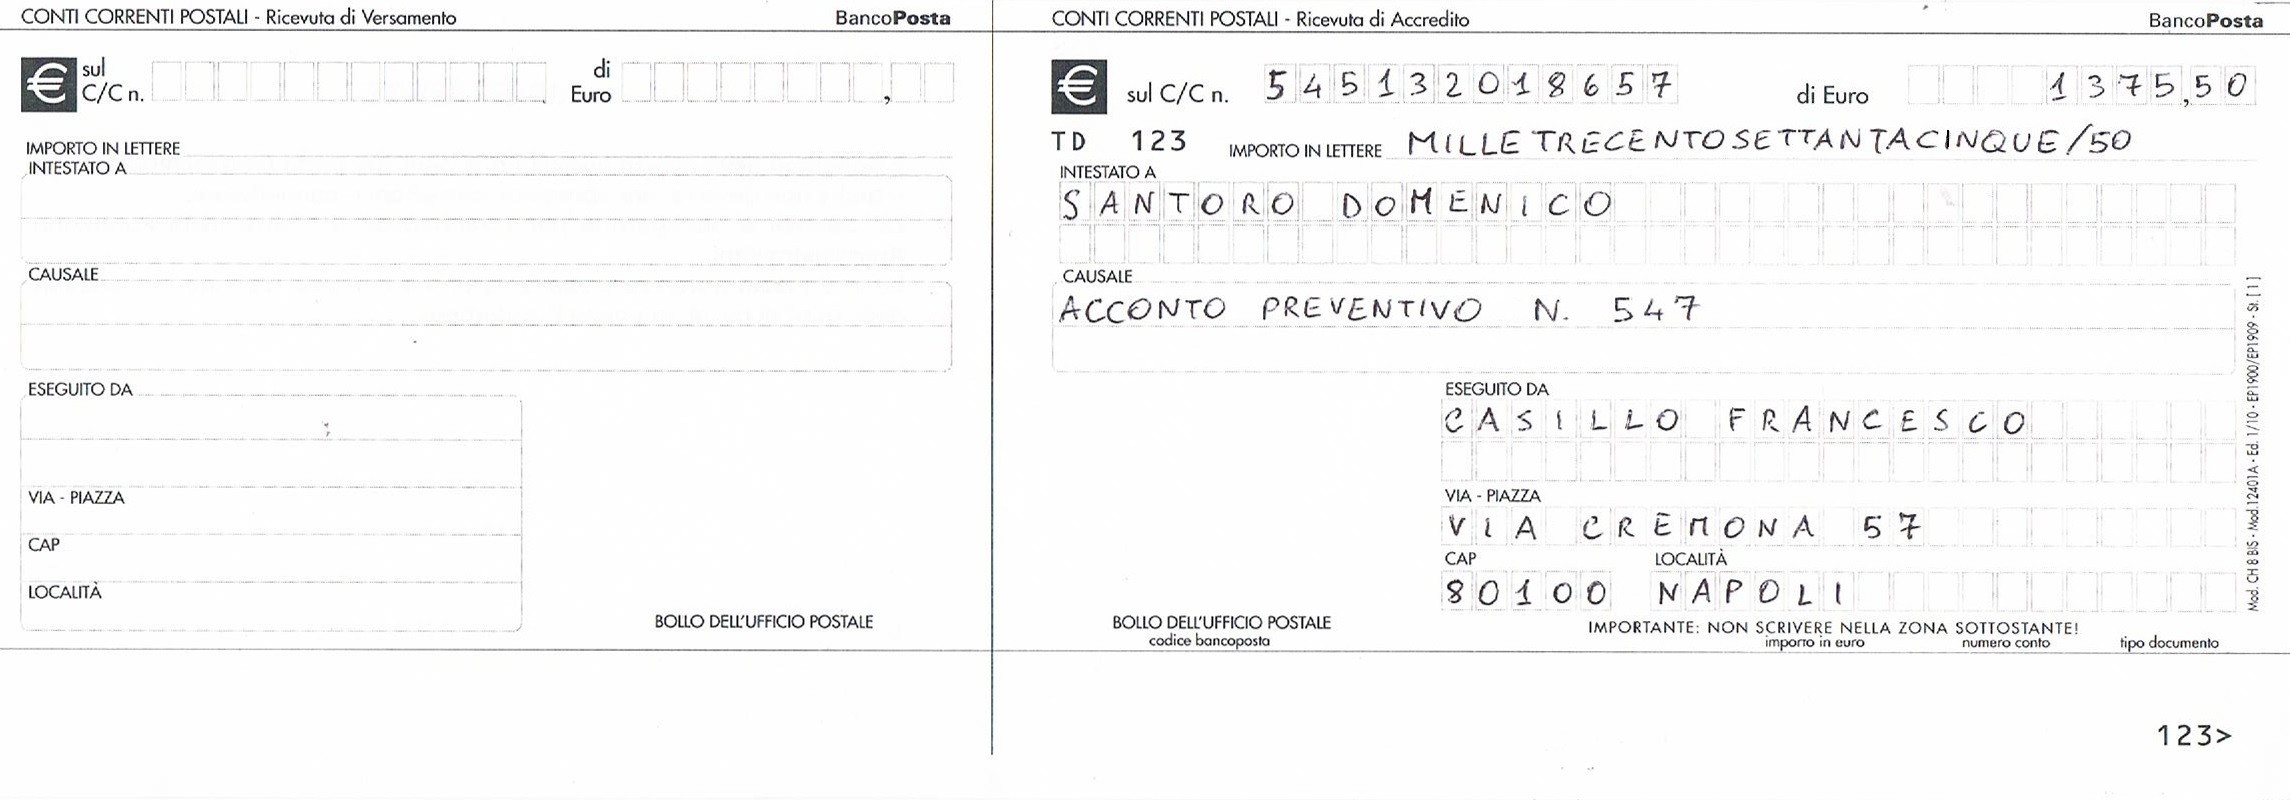 CONTI CORRENTI POSTALI - Ricevuta di Versamento BancoPosta
€ sul C/C n. di Euro ,
IMPORTO IN LETTERE
INTESTATO A
CAUSALE
ESEGUITO DA
VIA - PIAZZA
CAP
LOCALITÀ
BOLLO DELL'UFFICIO POSTALE
CONTI CORRENTI POSTALI - Ricevuta di Accredito BancoPosta
€ sul C/C n. 545132018657 di Euro 1375,50
TD 123 IMPORTO IN LETTERE MILLETRECENTOSETTANTACINQUE/50
INTESTATO A
SANTORO DOMENICO
CAUSALE
ACCONTO PREVENTIVO N. 547
ESEGUITO DA
CASILLO FRANCESCO
VIA - PIAZZA
VIA CREMONA 57
CAP LOCALITÀ
80100 NAPOLI
BOLLO DELL'UFFICIO POSTALE
codice bancoposta
IMPORTANTE: NON SCRIVERE NELLA ZONA SOTTOSTANTE!
importo in euro numero conto tipo documento
Mod. CH 8 BIS - Mod.12401A - Ed. 1/10 - EP1900/EP1909 - St. [1]
123>